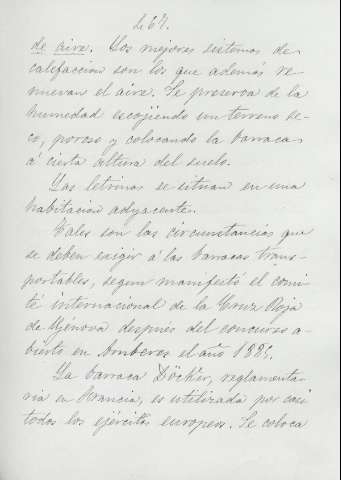 267.
de aire. Los mejores sistemas de
calefaccion son los que además re-
nuevan el aire. Se preserva de la
humedad escojiendo un terreno se-
co, poroso y colocando la barraca
á cierta altura del suelo.
Las letrinas se situan en una
habitacion adyacente.
Tales son las circunstancias que
se deben exigir á las barracas trans-
portables, segun manifestó el comi-
té internacional de la Cruz Roja
de Génova despues del concurso a-
bierto en Amberes el año 1885.
La barraca Döcker, reglamenta-
ria en Francia, es utilizada por casi
todos los ejércitos europeos. Se coloca